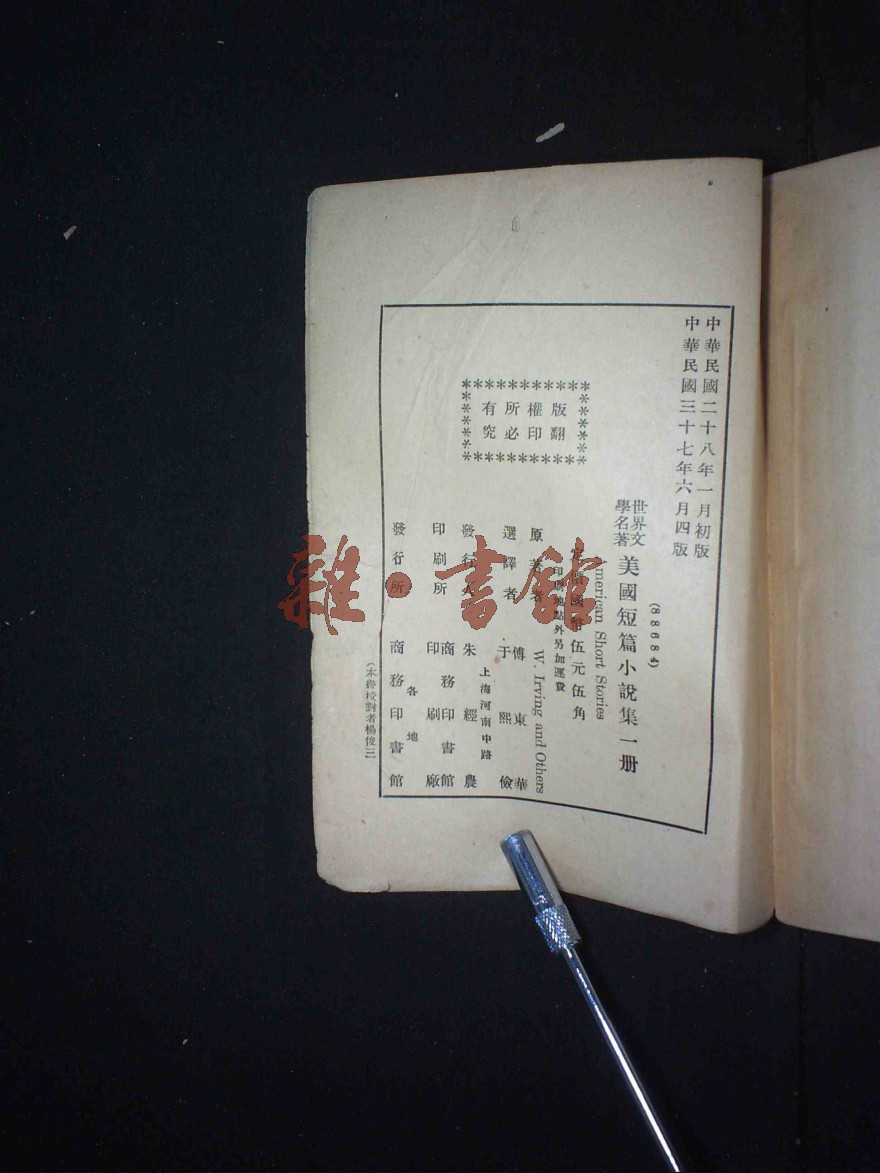 中華民國二十八年一月初版
中華民國三十七年六月四版
(88684)
世界文學名著 美國短篇小說集一册
American Short Stories
定價國幣伍元伍角
印刷地點外另加運費
版權所有
翻印必究
原著者 W. Irving and Others
選譯者 傅東華 于熙儉
發行人 朱經農
上海河南中路
印刷所 商務印書館印刷廠
發行所 商務印書館
各地
(本書校對者楊俊三)
雜·書館